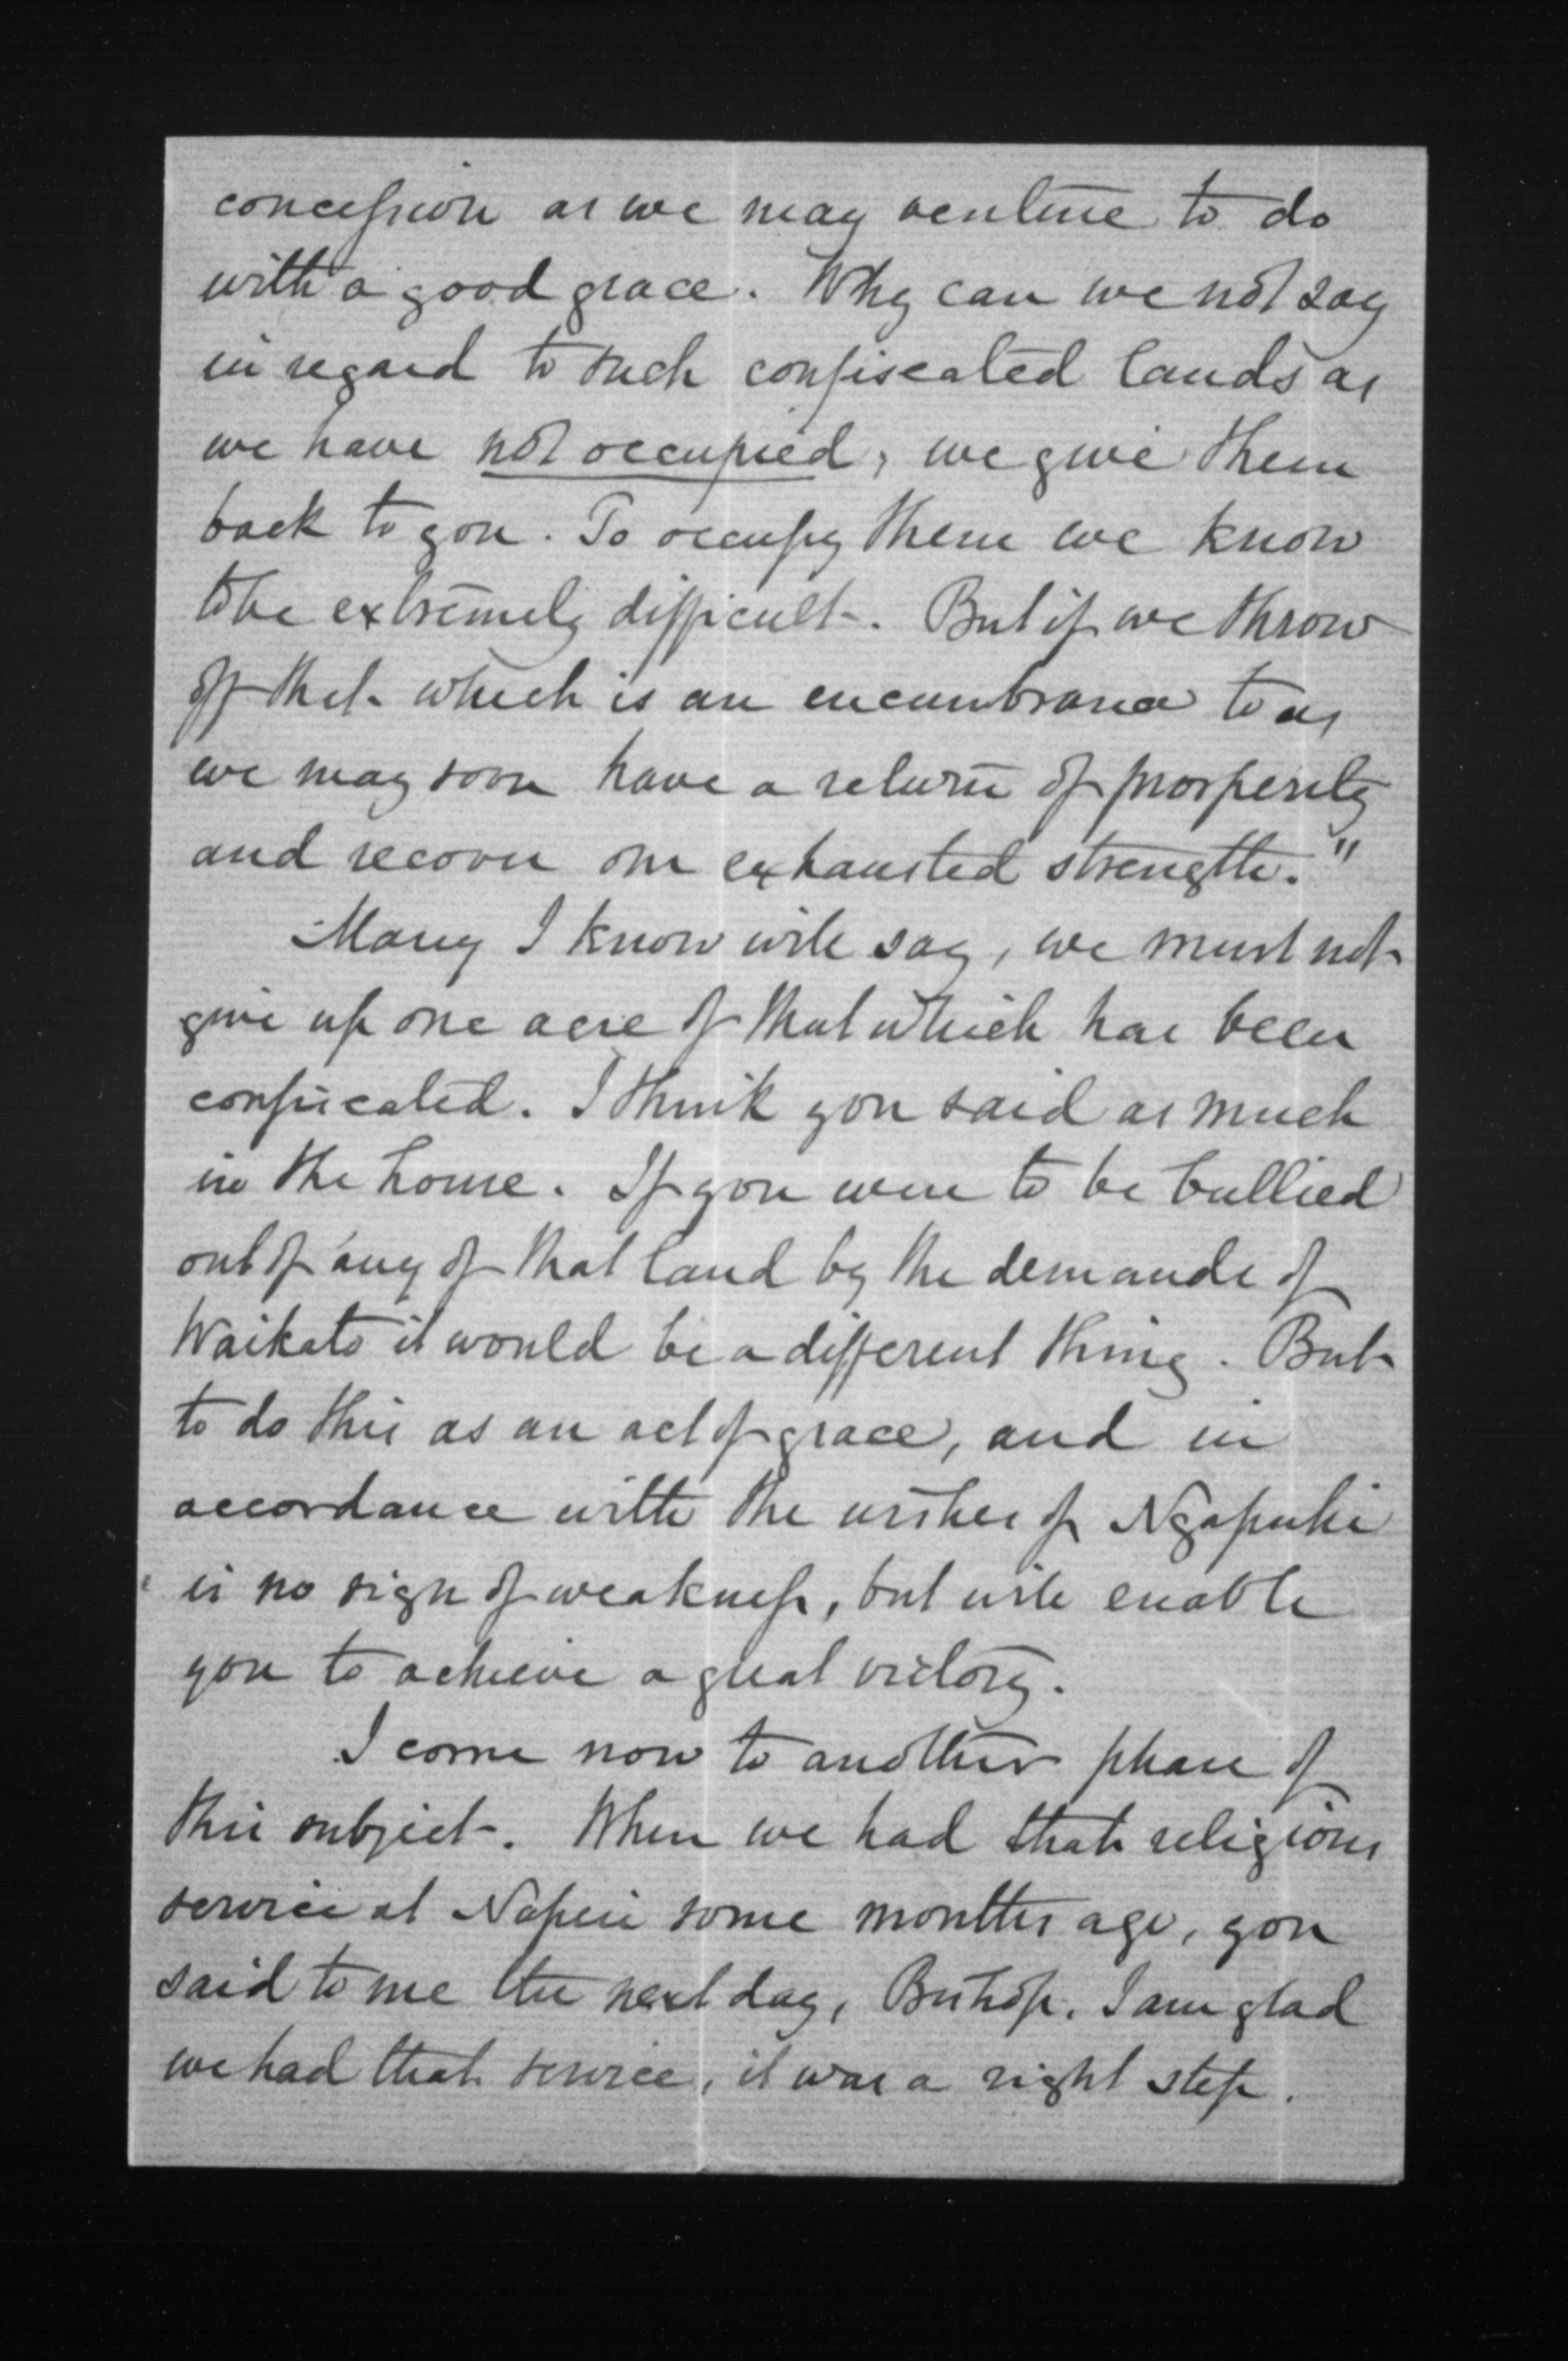 concession as we may venture to do
with a good grace. Why can we not say
in regard to such confiscated lands as
we have not occupied, we give them
back to you. To occupy them we know
to be extremely difficult. But if we throw
off that which is an encumbrance to us
we may soon have a return of prosperity
and recover our exhausted strength."
Many I know will say, we must not
give up one acre of that which has been
confiscated. I think you said as much
in the house. If you were to be bullied
out of any of that land by the demands of
Waikato it would be a different thing. But
to do this as an act of grace, and in
accordance with the wishes of Ngapuhi
is no sign of weakness, but will enable
you to achieve a great victory.
I come now to another phase of
this subject. When we had that religious
service at Napier some months ago, you
said to me the next day, Bishop. I am glad
we had that service, it was a right step.